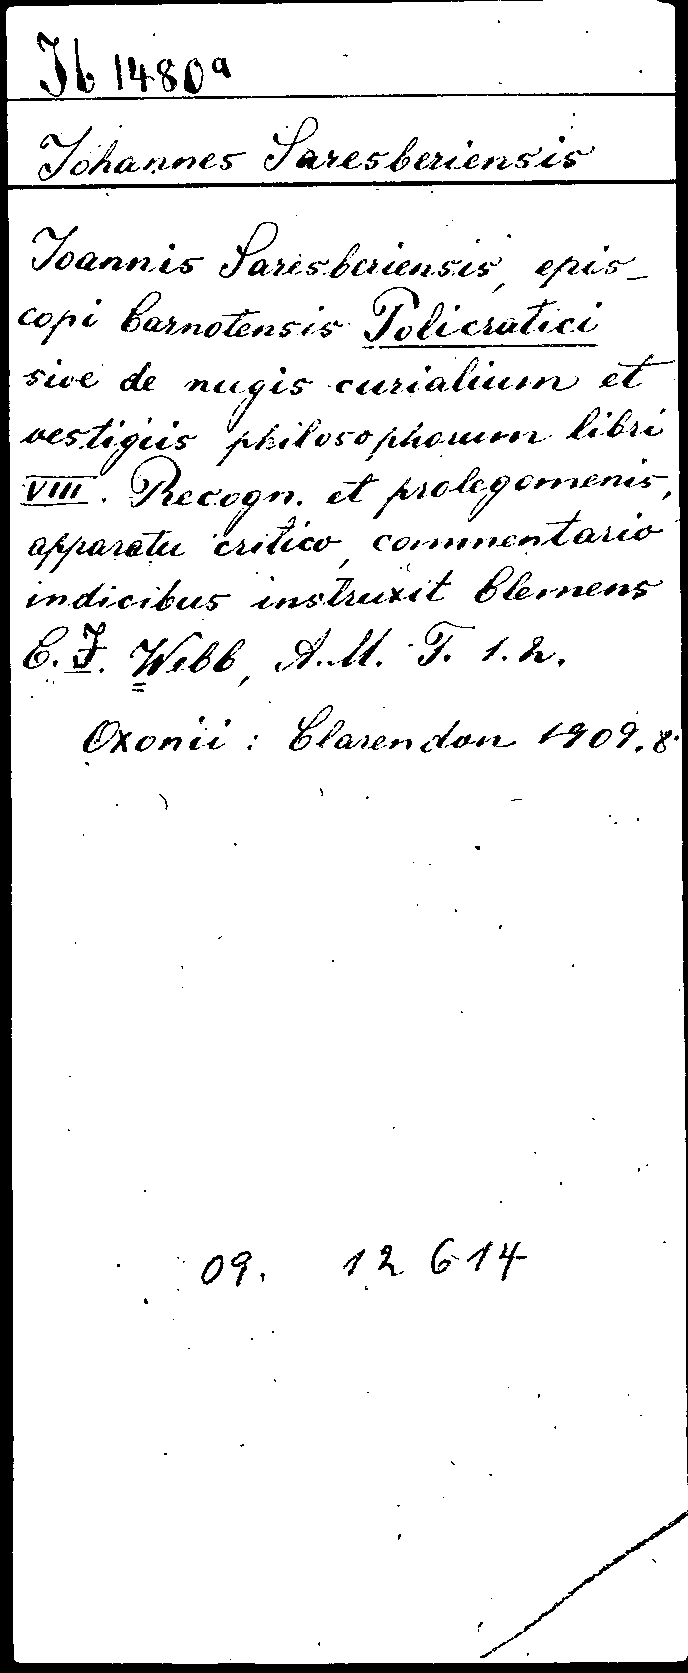 Jb 1480a
Johannes Saresberiensis
Ioannis Saresberiensis, epis-
copi Carnotensis Policratici
sive de nugis curialium et
vestigiis philosophorum libri
VIII. Recogn. et prolegomenis,
apparatu critico, commentario
indicibus instruxit Clemens
C. I. Webb, A.M. T. 1.2.
Oxonii: Clarendon 1909. 8.
09. 12 614